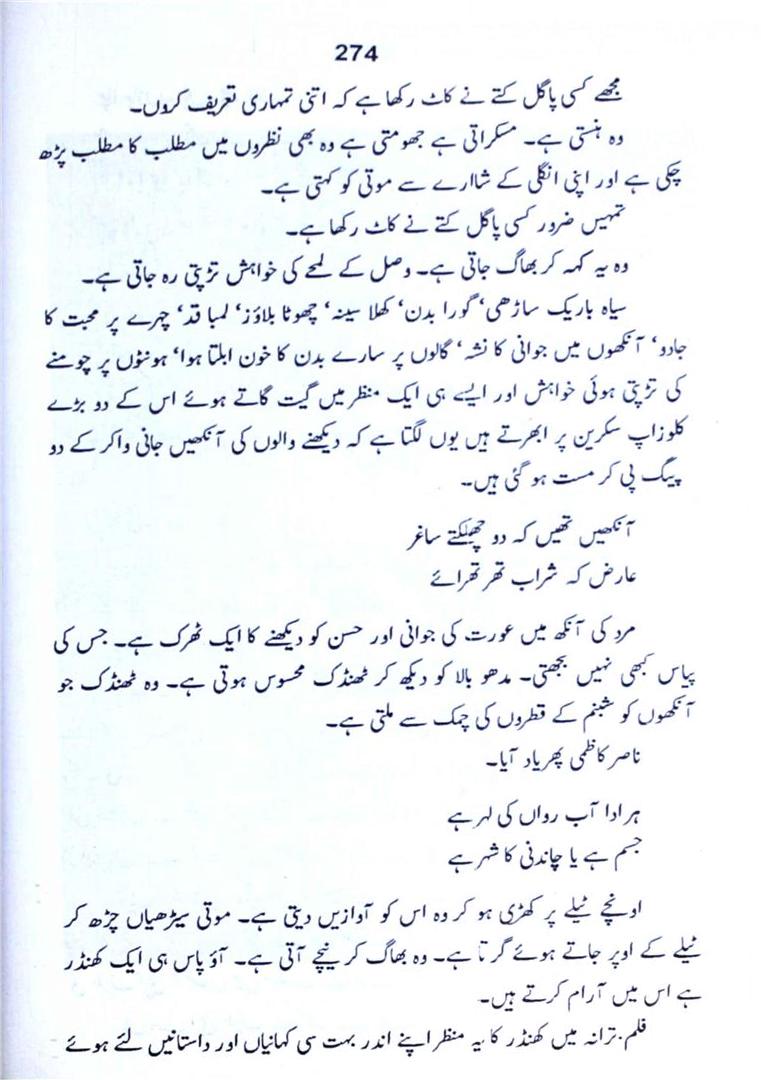 274
مجھے کسی پاگل کتے نے کاٹ رکھا ہے کہ اتنی تمہاری تعریف کروں۔
وہ ہنستی ہے۔ مسکراتی ہے جھومتی ہے وہ بھی نظروں میں مطلب کا مطلب پڑھ
چکی ہے اور اپنی انگلی کے شاارے سے موتی کو کہتی ہے۔
تمہیں ضرور کسی پاگل کتے نے کاٹ رکھا ہے۔
وہ یہ کہہ کر بھاگ جاتی ہے۔ وصل کے لمحے کی خواہش تڑپتی رہ جاتی ہے۔
سیاہ باریک ساڑھی‘ گورا بدن‘ کھلا سینہ‘ چھوٹا بلاؤز‘ لمبا قد‘ چہرے پر محبت کا
جادو‘ آنکھوں میں جوانی کا نشہ‘ گالوں پر سارے بدن کا خون ابلتا ہوا‘ ہونٹوں پر چومنے
کی تڑپتی ہوئی خواہش اور ایسے ہی ایک منظر میں گیت گاتے ہوئے اس کے دو بڑے
کلوزاپ سکرین پر ابھرتے ہیں یوں لگتا ہے کہ دیکھنے والوں کی آنکھیں جانی واکر کے دو
پیگ پی کر مست ہو گئی ہیں۔
آنکھیں تھیں کہ دو چھلکتے ساغر
عارض کہ شراب تھر تھرائے
مرد کی آنکھ میں عورت کی جوانی اور حسن کو دیکھنے کا ایک ٹھرک ہے۔ جس کی
پیاس کبھی نہیں بجھتی۔ مدھو بالا کو دیکھ کر ٹھنڈک محسوس ہوتی ہے۔ وہ ٹھنڈک جو
آنکھوں کو شبنم کے قطروں کی چمک سے ملتی ہے۔
ناصر کاظمی پھر یاد آیا۔
ہر ادا آب رواں کی لہر ہے
جسم ہے یا چاندنی کا شہر ہے
اونچے ٹیلے پر کھڑی ہو کر وہ اس کو آوازیں دیتی ہے۔ موتی سیڑھیاں چڑھ کر
ٹیلے کے اوپر جاتے ہوئے گرتا ہے۔ وہ بھاگ کر نیچے آتی ہے۔ آؤ پاس ہی ایک کھنڈر
ہے اس میں آرام کرتے ہیں۔
فلم ترانہ میں کھنڈر کا یہ منظر اپنے اندر بہت سی کہانیاں اور داستانیں لئے ہوئے